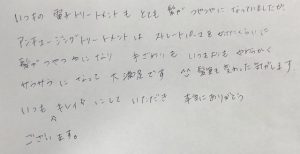 いつもの電子トリートメントもとても髪がつやつやになっていましたが
アンチエージングトリートメントはストレートパーマをかけたくらいに
髪がつやつやになり手ざわりもいつもよりもやわらかく
サラサラになって大満足です ^^ 髪質も変わった気がします。
いつもキレイにしていただき本当にありがとう
ございます。